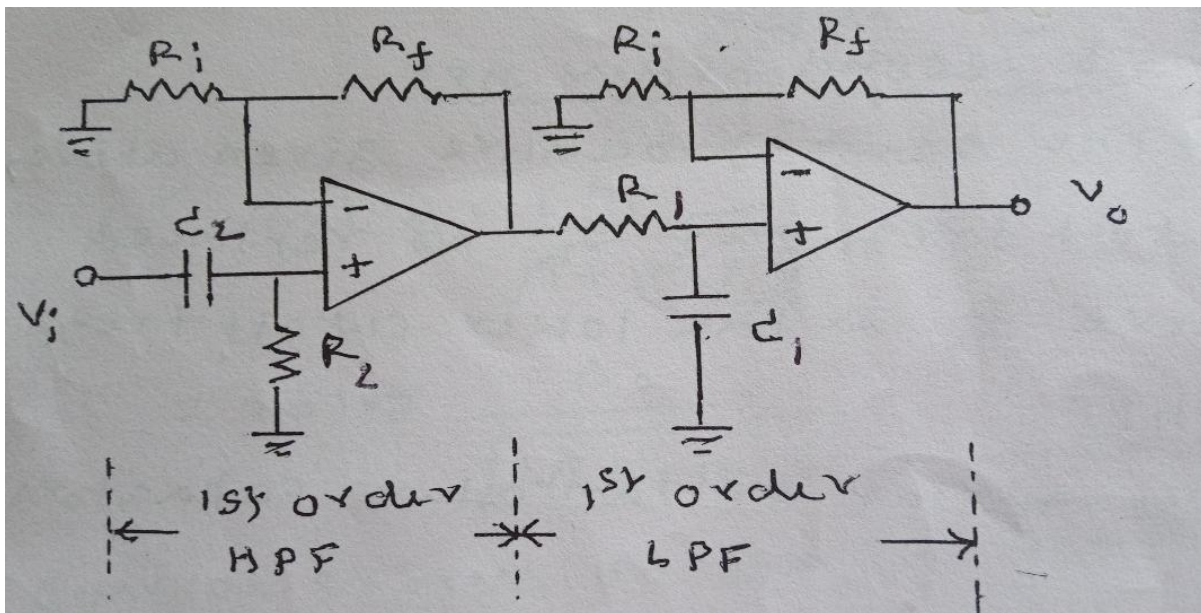 Ri Rf Ri Rf
R1
C2
Vi
R2
C1
Vo
1st order
HPF
1st order
LPF